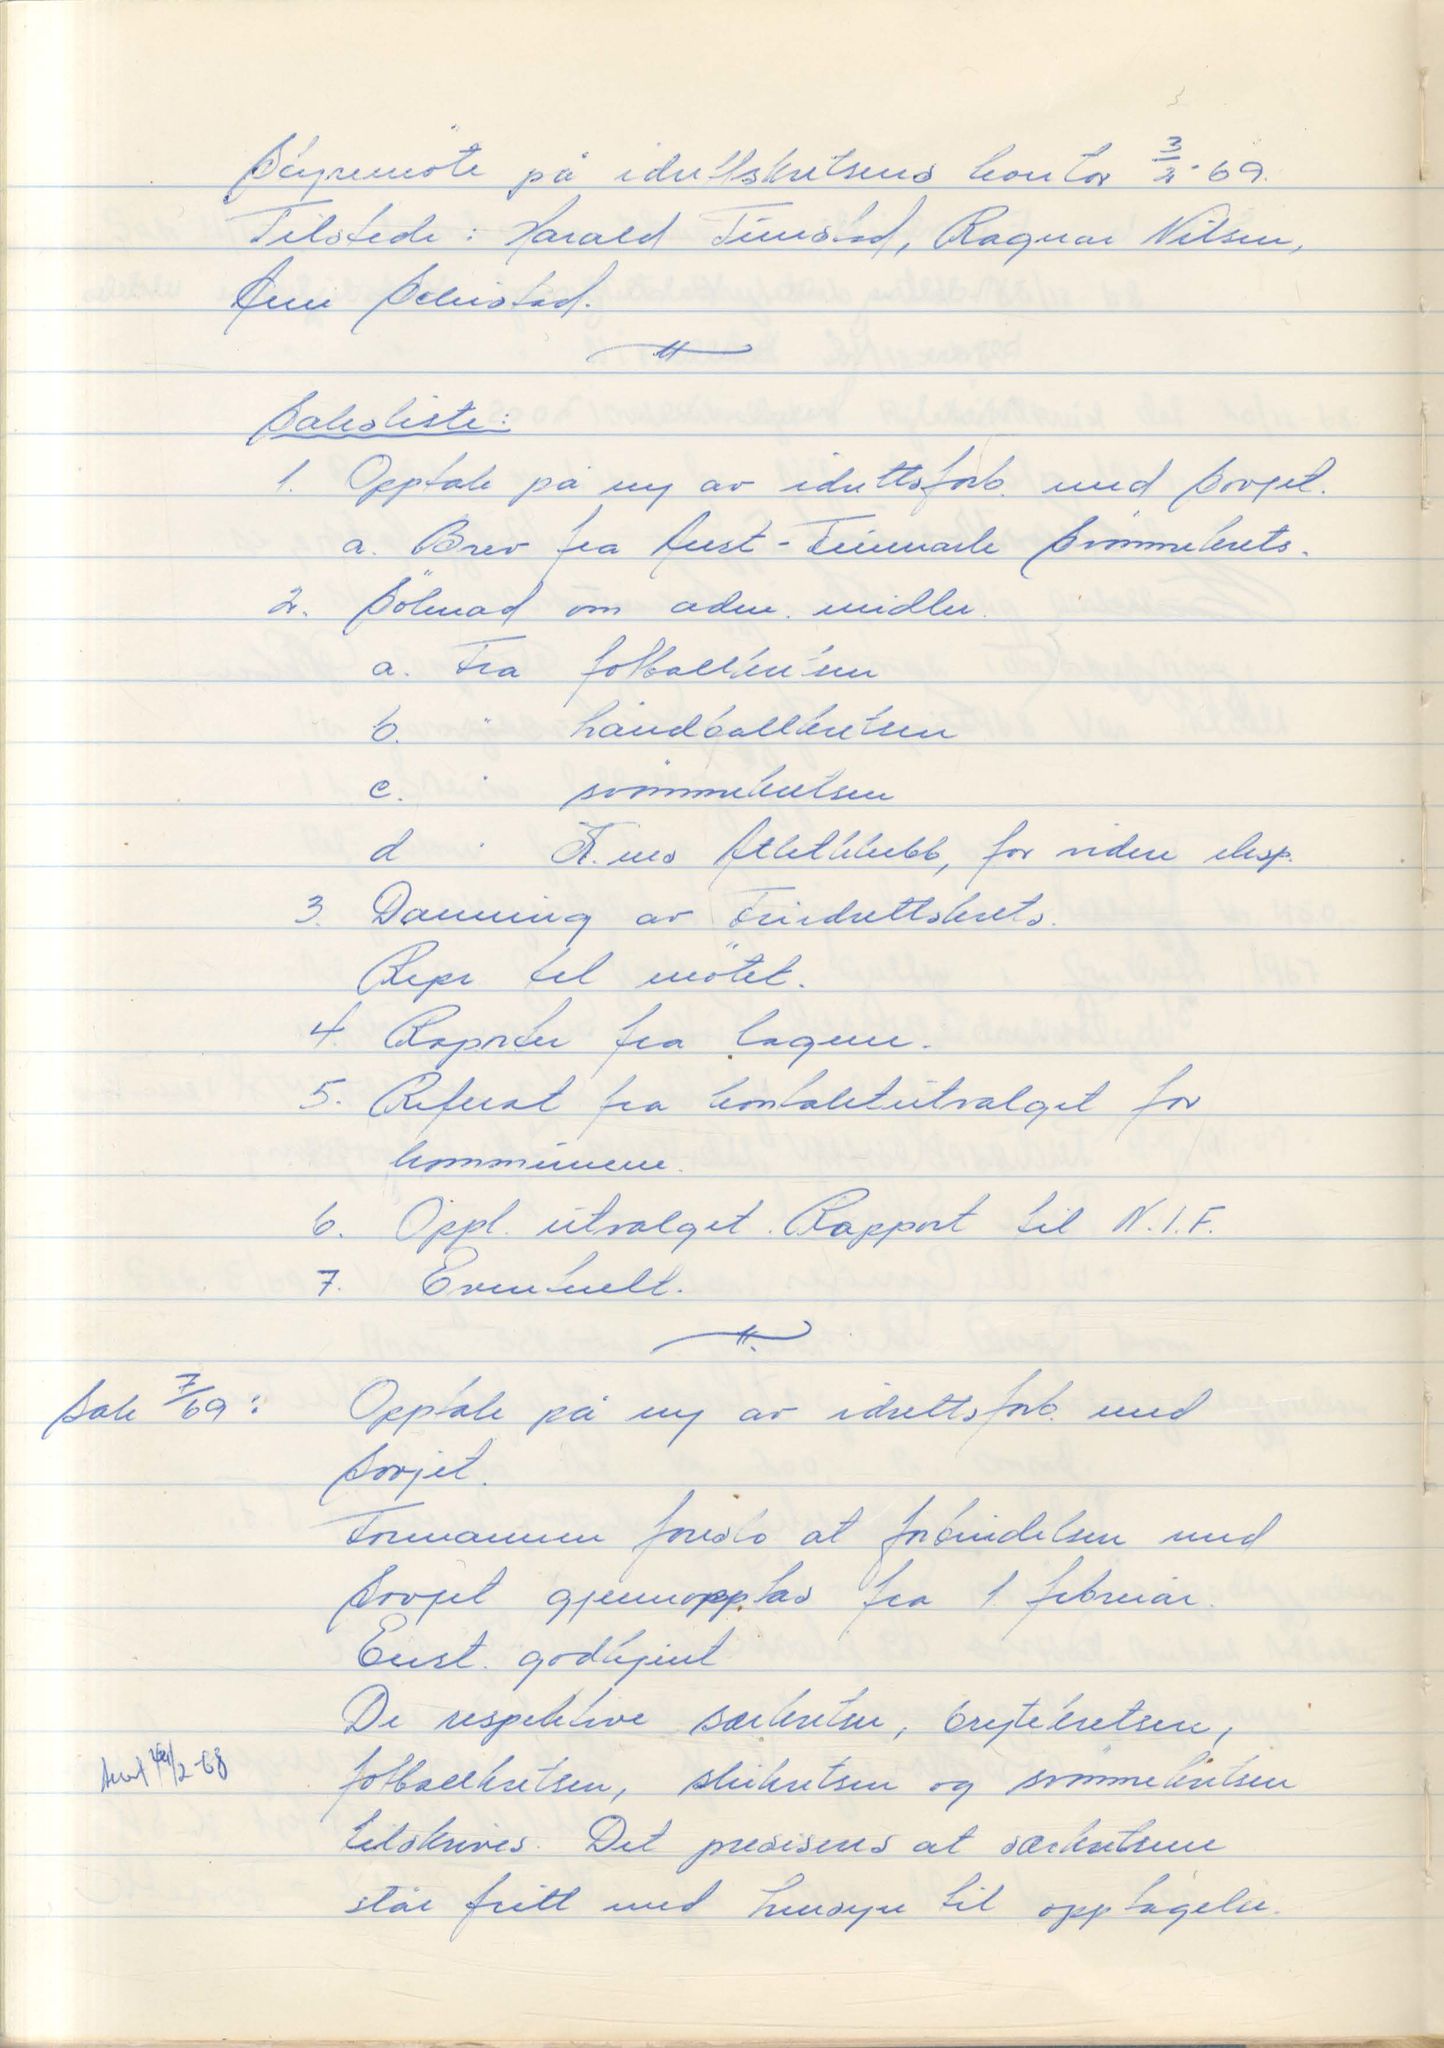 Styremöte på idrettskretsens kontor 3/2-69.
Tilstede: Harald Finnstad, Ragnar Nilsen,
"
Saksliste:
1. Opptak på ny av idrettsforb. med Sovjet.
a. Brev fra Aust-Finnmark Svömmekrets.
2. Söknad om adm. midler.
a. Fra fotballkretsen
b. " håndballkretsen
c. " svömmekretsen
d " Atletklubb, for videre eksp.
3. Danning av Friidrettskrets.
Repr til mötet.
4. Raporter fra lagene.
5. Referat fra kontaktutvalget for
kommunene.
6. Oppl. utvalget. Rapport til N.I.F.
7. Eventuelt.
"
Sak 7/69: Opptak på ny av idrettsforb. med
Sovjet.
Formannen foreslo at forbindelsen med
Sovjet gjennopptas fra 1. februar.
Enst. godkjent
De respektive særkretser, brytekretsen,
fotballkretsen, skikretsen og svömmekretsen
tilskrives. Det presiseres at særkretsene
står fritt med hensyn til opptagelse.